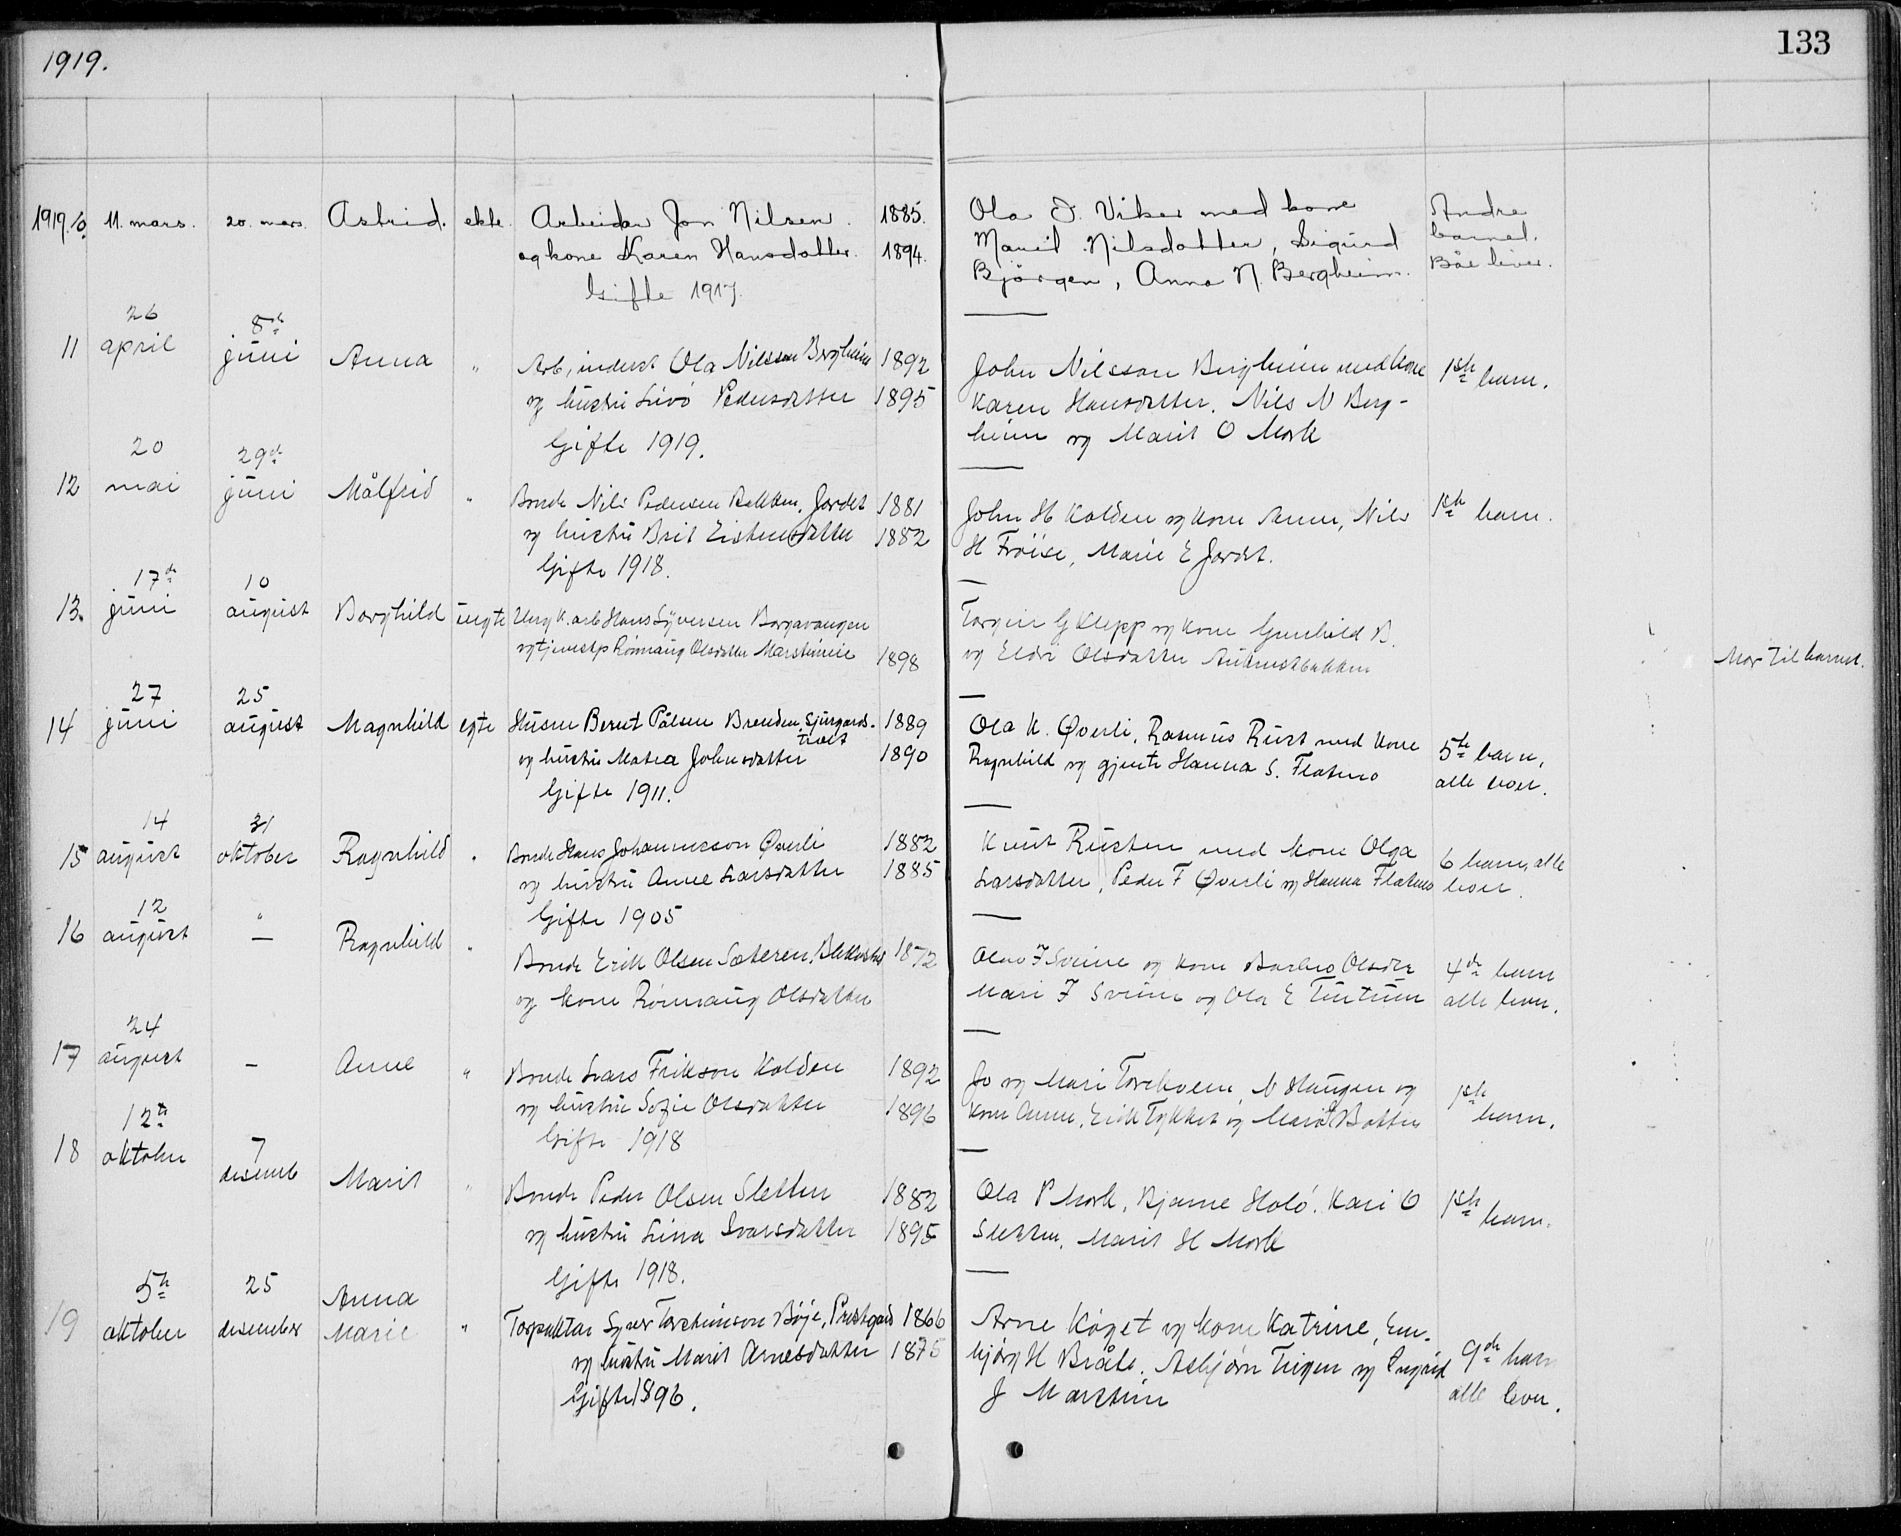 1919.
133
1919. 10. 11. mars. 20. mars. Astrid. ekte. Arbeider Jon Nilsen. 1885. Ola J. Viker med kone Andre
og kone Karen Hansdatter. 1894. Marit Nilsdatter, Sigurd barnet.
Gifte 1917. Bjørgen, Anna N. Bergheim. Båe lever.
26 8de
11 april juni Anna " Arb, inderst Ola Nilsson Bergheim 1892 John Nilsson Bergheim med kone 1ste barn.
og hustru Livò Pedersdatter 1895 Karen Hansdatter. Nils N Berg-
Gifte 1919. heim og Marit O Mork
20 29de
12 mai juni Målfrid " Bonde Nils Pedersen Bakken, Jordet 1881 John H Kolden og kone Anne, Nils 1ste barn.
og hustru Brit Eistensdatter 1882 H Frøise, Marie E Jordet.
Gifte 1918.
17de 10
13. juni august Borghild uegte Ung K. arb Hans Syversen Borgavangen Torgeir G Klepp og kone Gunhild B.
og tjenestp Rønnaug Olsdatter Marsteinlie 1898 og Eldri Olsdatter Mor til barnet.
27 25
14 juni august Magnhild egte Husm Bernt Pålsen Brenden, Sjurgards- 1889 Ola K. Øverli, Rasmus Rust med kone 5te barn,
trøet
og hustru Matea Johnsdatter 1890 Ragnhild og gjente Hanna S. Flatmo alle lever.
Gifte 1911.
14 31
15 august oktober Ragnhild " Bonde Hans Johannesson Øverli 1882 Knut Rusten med kone Olga 6 barn, alle
og hustru Anne Larsdatter 1885 Larsdatter, Peder F Øverli og Hanna Flatmo lever.
Gifte 1905
12 "
16 august — Ragnhild " Bonde Erik Olsen Sæteren, 1872 Olav F Sveine og kone Barbro Olsdtr 4de barn
og kone Rønnaug Olsdatter Mari F Sveine og Ola E alle lever.
24
17 august — Anne " Bonde Lars Frikson Kolden 1892 Jo og Mari Torehoem, N Haugen og 1ste
og hustru Sofie Olsdatter 1896 kone Anne, Erik og Mari Botten barn.
Gifte 1918
12te
18 oktober 7
desemb Marit " Bonde Peder Olsen Sletten 1882 Ola P Mork, Bjarne Holò, Kari O 1ste
og hustru Lina Ivarsdatter 1895 Sletten, Marit H Mork barn.
Gifte 1918.
5te 25 Anna
19 oktober desember Marie " Torpaktar Syver Torsteinson Bøje, Prestgard 1866 Arne Køget og kone Katrine, Em- 9de barn
og hustru Marit Arnesdatter 1875 bjørg H Bråte. Asbjørn Teigen og Ingrid alle lever.
Gifte 1896. J Marstein